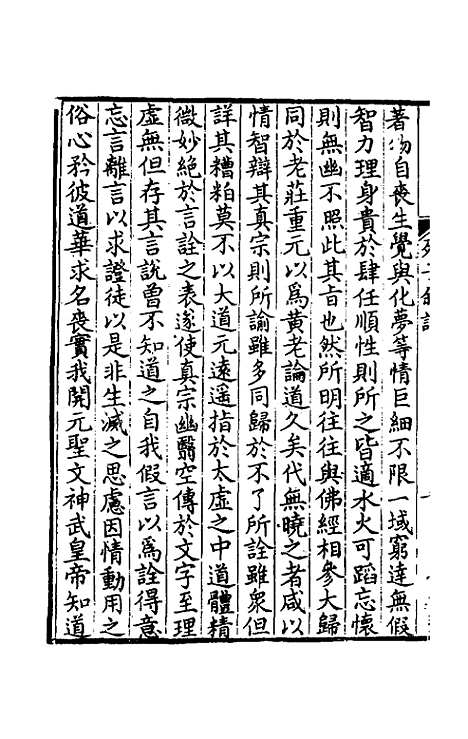 著物自喪生覺與化夢等情巨細不限一域窮達無假
智力理身貴於肆任順性則所之皆適水火可蹈忘懷
則無幽不照此其旨也然所明往往與佛經相參大歸
同於老莊重元以爲黃老論道久矣代無曉之者咸以
情智辯其真宗則所諭雖多同歸於不了所詮雖衆但
詳其糟粕莫不以大道元遠遥指於太虛之中道體精
微妙絕於言詮之表遂使真宗幽翳空傳於文字至理
虛無但存其言說曾不知道之自我假言以爲詮得意
忘言離言以求證徒以是非生滅之思慮因情動用之
俗心矜彼道華求名喪實我開元聖文神武皇帝知道